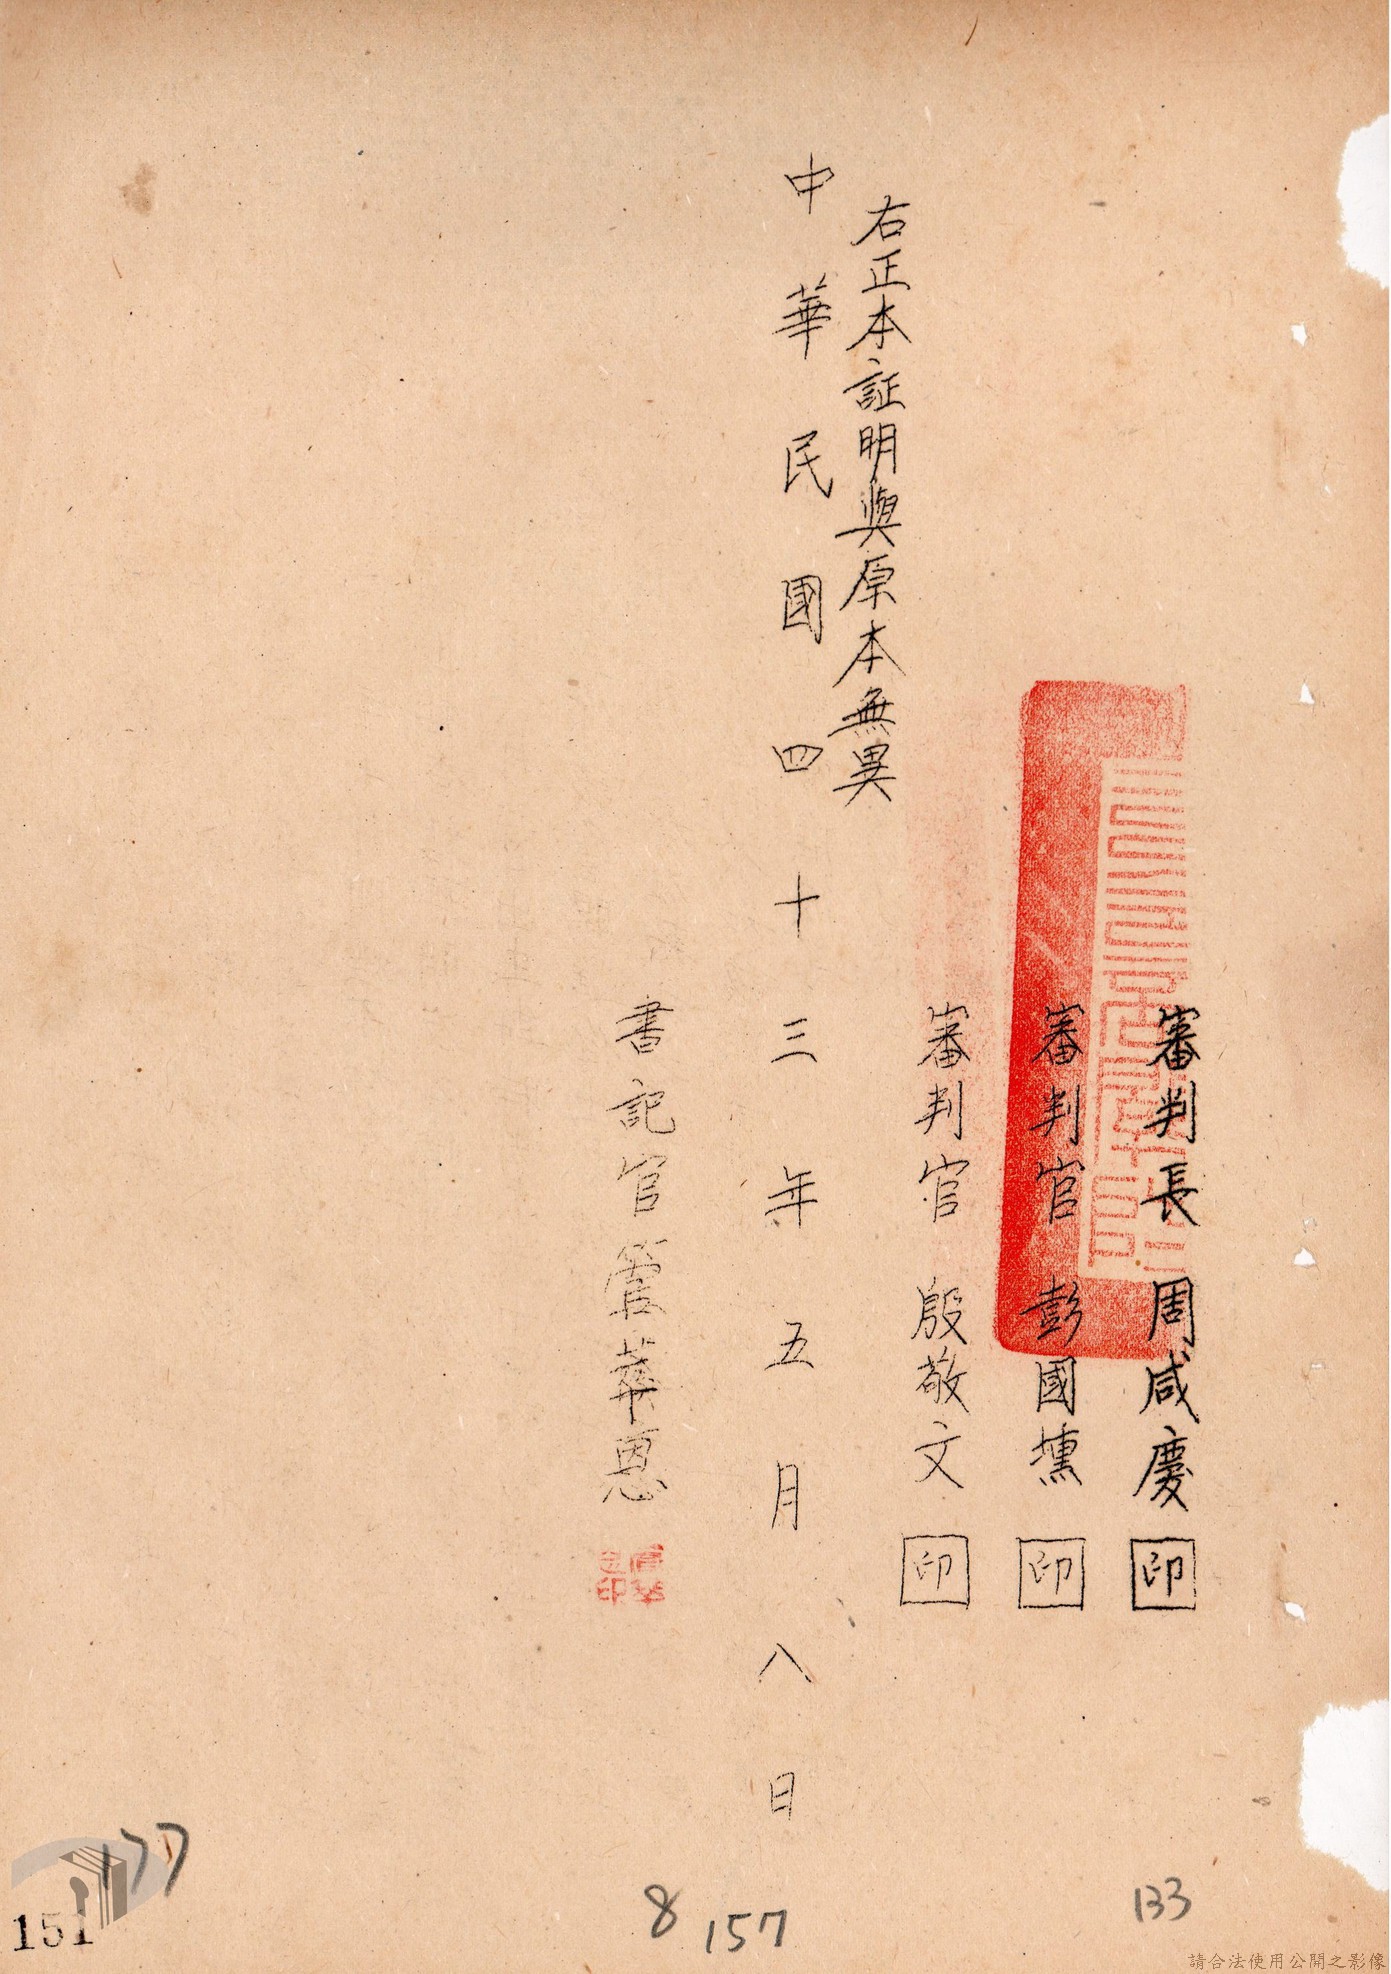 審判長 周咸慶 印
審判官 彭國壎 印
審判官 殷敬文 印
右正本証明與原本無異
中華民國四十三年五月八日
書記官 管葬恩
177
151
8
157
133
請合法使用公開之影像